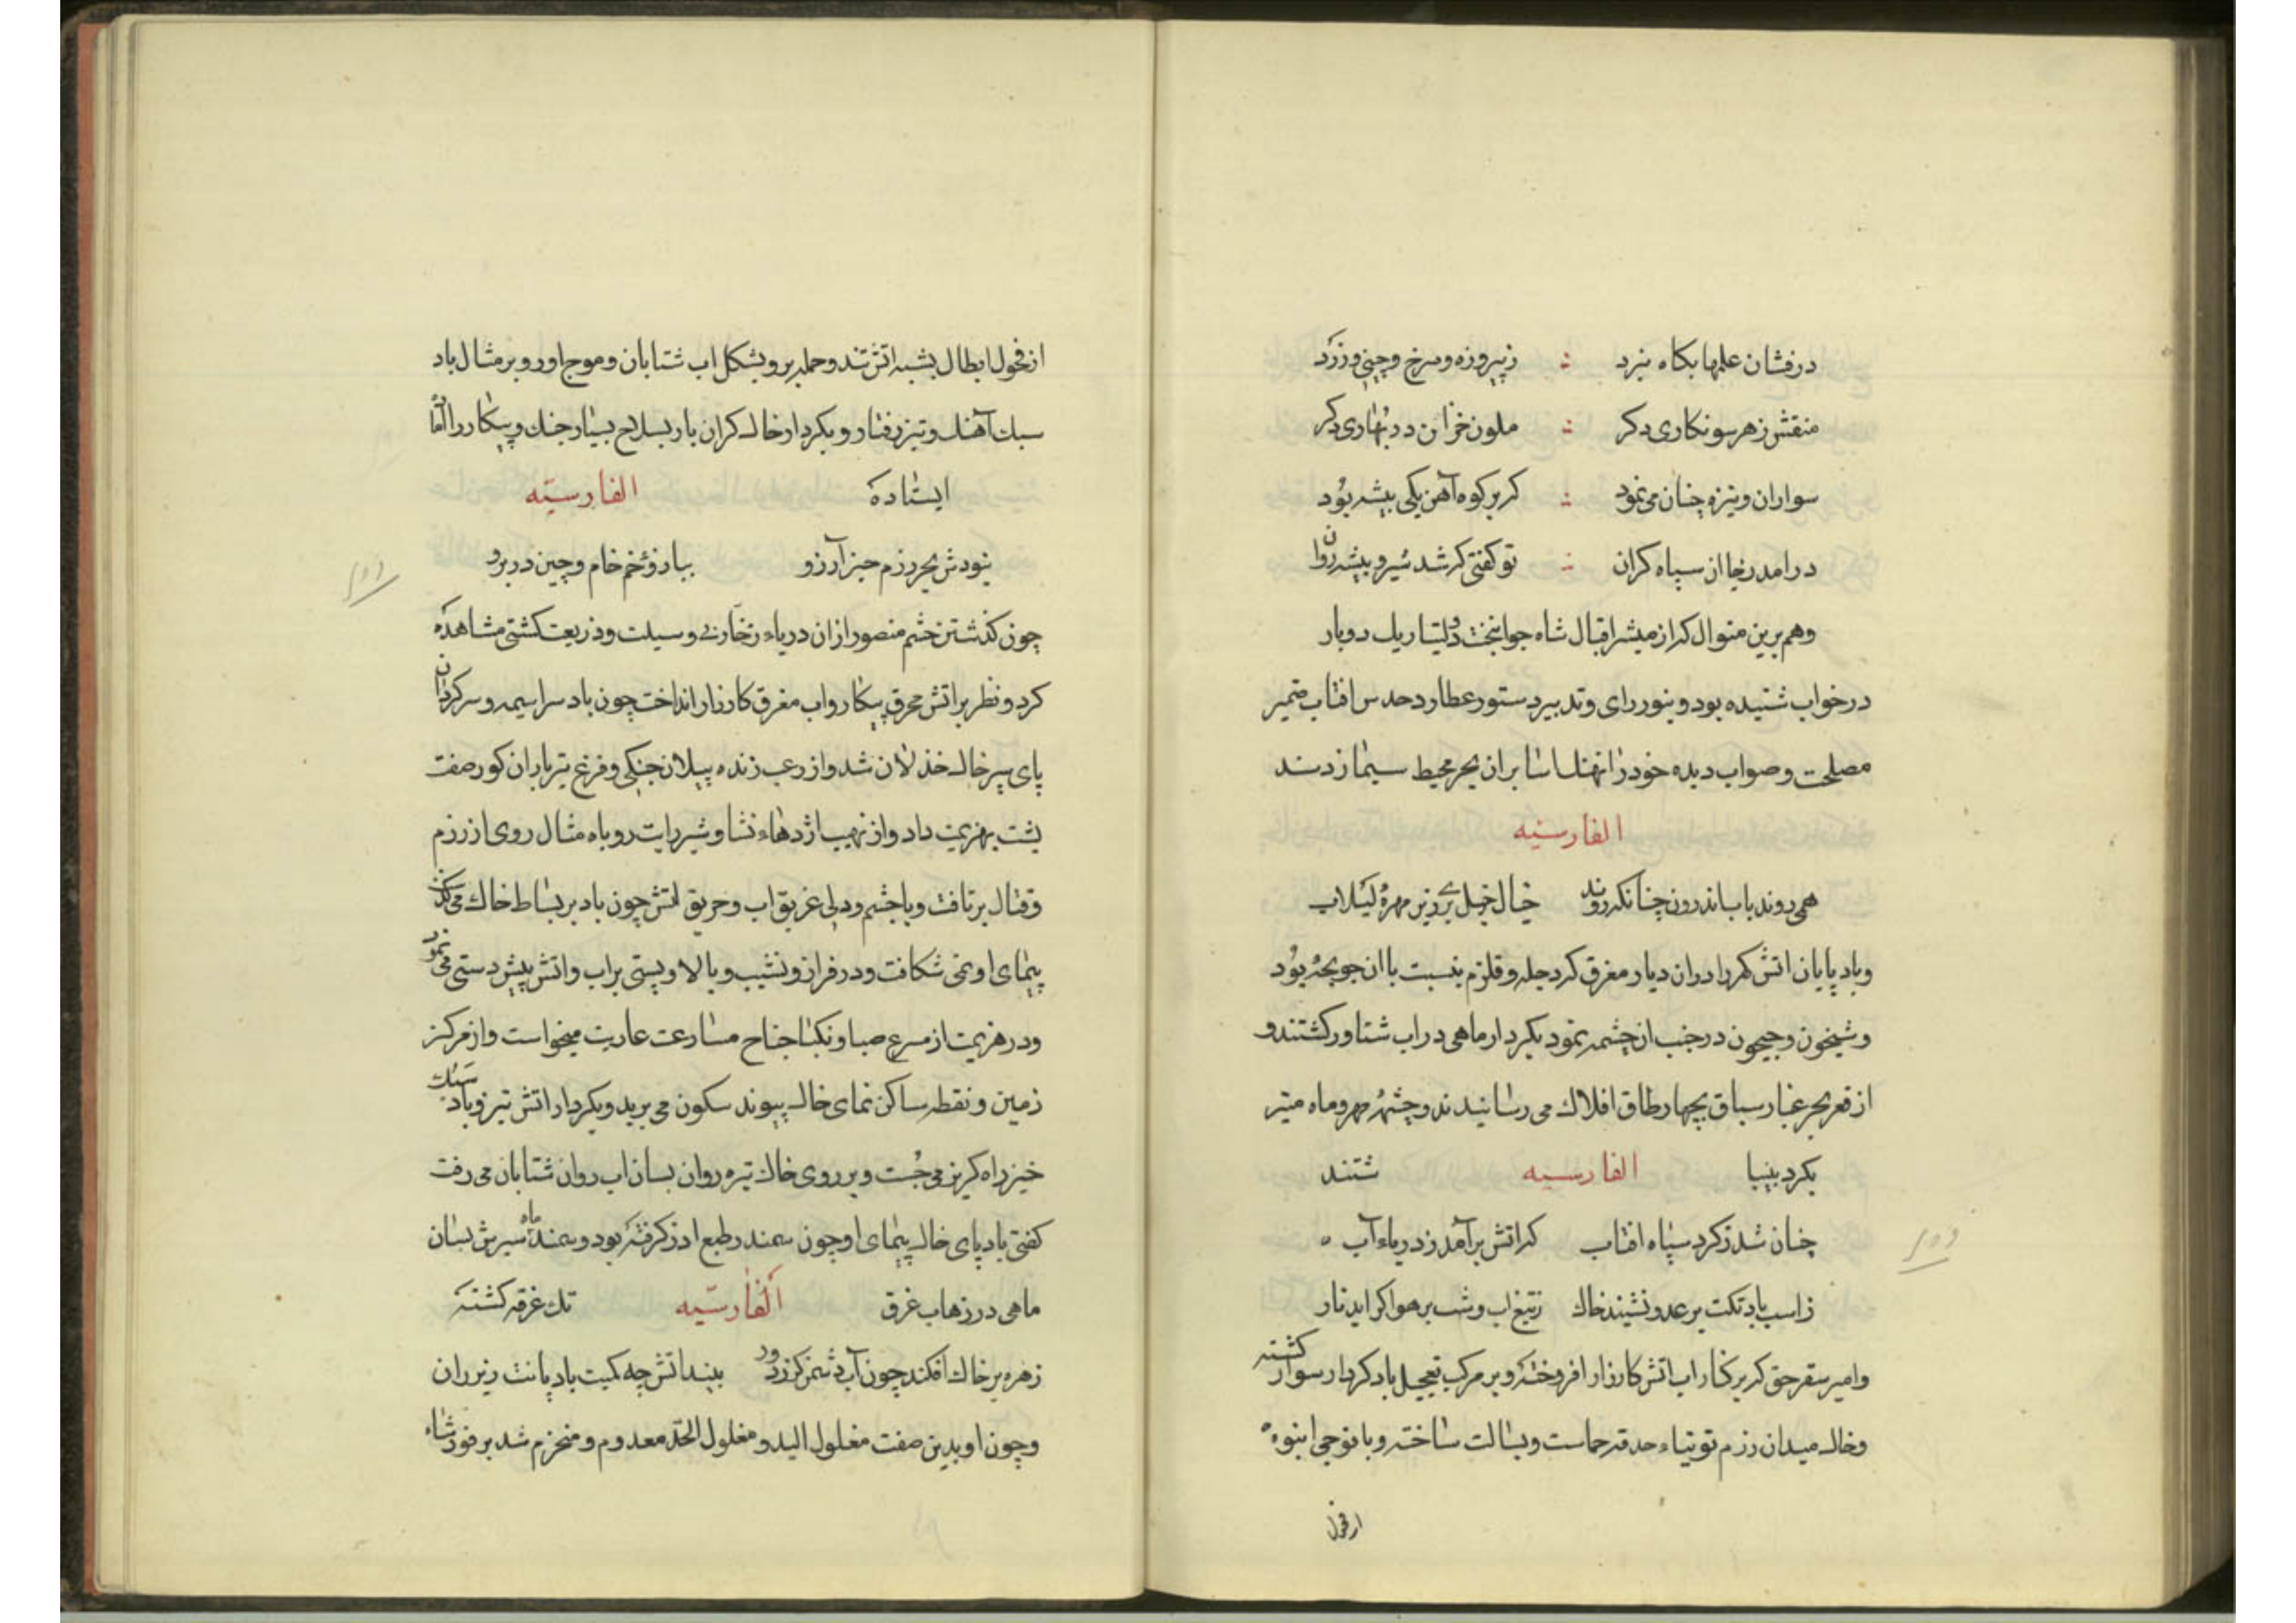 درفشان علمها بکاه نبرد ز پیروزه و سرخ و چینی و زرد
منقش ز هر سو نکاری دکر ملون خزان در بهاری دکر
سواران و نیزه چنان می نمود که بر کوه آهن یکی بیشه بود
درامد ز جا از سپاه کران تو کفتی که شد شیر و بیشه روان
وهم برین منوال که از مبشر اقبال شاه جوانبخت در
درخواب شنیده بود و بنور رای و تدبیر دستور عطارد حدس افتاب ضمیر
مصلحت و صواب دیده خود را نهنک اسا بران بحر محیط سیما زدند
الفارسیه
همی روند باب اندرون چنانکه روند خیال خیل
و باد پایان اتش کهر را دران دیار مغرق که دجله و قلزم بنسبت با ان جویچه بود
و شیخون و جیحون در جنب ان چشمه نمود بکردار ماهی در اب شناور کشتند و
از قعر بحر غبار سباق بچهار طاق افلاک می رسانیدند و چشمه مهر و ماه منیر
بکرد بینبا الفارسیه شتند
چنان شد ز کرد سپاه افتاب که اتش برآمد ز دریاء آب
ز اسب باد تکت بر عدو نشیند خاک ز تیغ اب وشت بر هوا کراید نار
و امیر سقرحق که بر کنار اب اتش کارزار افروخته و بر مرکب تعجیل باد کردار سوار کشته
و خاک میدان رزم توتیاء حدقه حماست و بسالت ساخته و با فوجی انبوه
از فحول
از فحول ابطال بشبه اتش تند و حمله بر و بشکل اب شتابان و موج اور و بر مثال باد
سبک آهنک و تیز رفتار و بکردار خاک کران بار بسلاح بسیار جنک و پیکار را اماده
ایستاده الفارسیه
نبودش بجز رزم چیز آرزو بباد زخم خام و چین در برو
چون کذشتن خشم منصور ازان دریاء زخار بی وسیلت و ذریعت کشتی مشاهده
کرد و نظر بر اتش محرق پیکار و اب مغرق کارزار انداخت چون باد سراسیمه و سرکردان
پای سپر خاک خذلان شد و از رعب زنده پیلان جنکی و فزع تیر باران کور صفت
پشت بهزیمت داد و از نهیب اژدهاء نشا و شیر رایت روباه مثال روی از رزم
و قتال برتافت و با چشم و دلی غریق اب و حریق اتش چون باد بر بساط خاک می کذشت
پیمای او نمی شکافت و در فراز و نشیب و بالا و پستی بر اب و اتش پیش دستی می نمود
و در هزیمت از مسرع صبا و نکبا جناح مسارعت عاریت میخواست و از مرکز
زمین و نقطه ساکن نمای خاک پیوند سکون می برید و بکردار اتش تیز و باد سبک
خیز راه کریز می جست و بر روی خاک تیره روان بسان اب روان شتابان می رفت
کفتی باد پای خاک پیمای او چون سمندر طبع اذر کرفته بود و سمند ماه سیرش بسان
ماهی در زهاب غرق الفارسیه تک غرقه کشته
زهره بر خاک افکند چون آب دشمن کز زود بیند اتش چه کمیت باد پایت زیر ران
و چون او بدین صفت مغلول الید و مفلول الحد معدوم و منهزم شد بر فور شاه